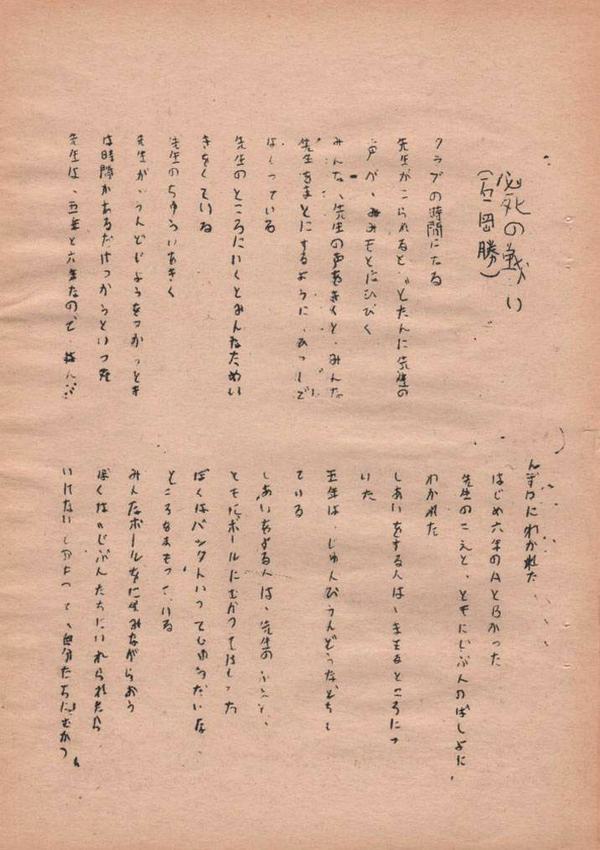 必死の戦い
(石岡勝)
クラブの時間になる
先生がこられると、とたんに先生の
声が、みみもとにひびく
みんな、先生の声をきくと、みんな
先生をまとにするように、あつして
はしっている
先生のところにいくとみんなためい
きをしている
先生のちゅういをきく
先生が、うんどじょうをつかっとき
は時間があるだけつかうといつた
先生は、五年と六年なので
んずつにわかれた
はじめ六年のAとBかった
先生のこえと、ともにじぶんのばしょに
わかれた
しあいをする人は、きまるところにつ
いた
五年は、じゅんびうんどうなどをし
ている
しあいをする人は、先生の
ともにボールにむかってはしった
ぼくはバックといってじゅうだいな
ところをまもっている
みんなボールをなにせみながらおう
ぼくは、じぶんたちにいれられたら
いけないとおもって、自分たちにむかつ